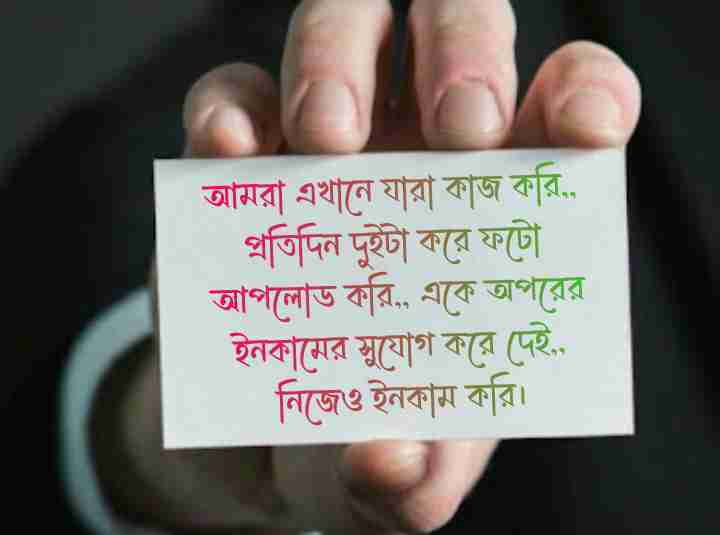 আমরা এখানে যারা কাজ করি,,
প্রতিদিন দুইটা করে ফটো
আপলোড করি,, একে অপরের
ইনকামের সুযোগ করে দেই,,
নিজেও ইনকাম করি।